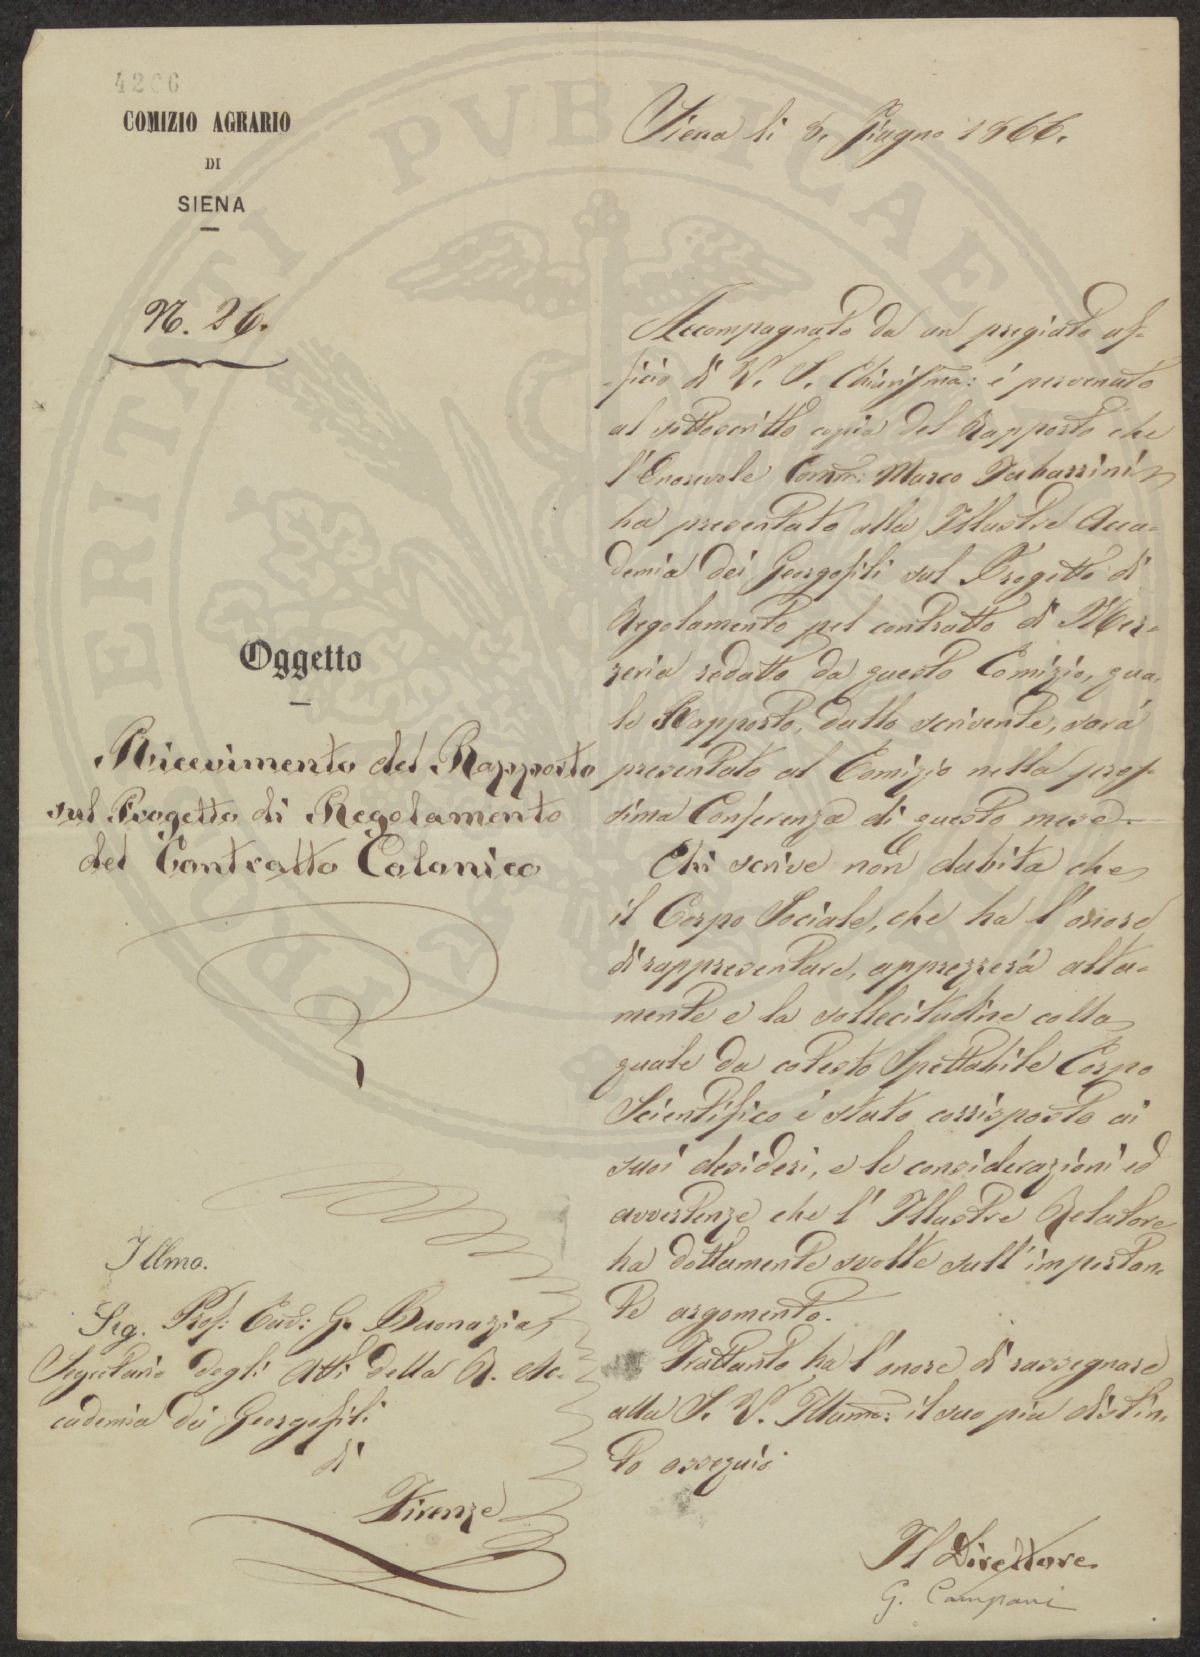 4206
COMIZIO AGRARIO
DI
SIENA
N. 26.
Oggetto
Ricevimento del Rapporto
sul Progetto di Regolamento
del Contratto Colonico
Illmo.
Sig. Prof: Cav: G. Buonazia,
Segretario degli Atti della R. Ac-
cademia dei Georgofili
di
Firenze
Siena li 8. Giugno 1866.
Accompagnato da un pregiato uf-
-ficio di V. S. Chiarissma: é pervenuto
al sottoscritto copia del Rapporto che
l'Onorevole Comm: Marco Tabarrini
ha presentato alla Illustre Acca-
demia dei Georgofili sul Progetto di
Regolamento pel contratto di Mez-
zeria redatto da questo Comizio, qua-
le Rapporto, dallo scrivente, sará
presentato al Comizio nella pros-
sima Conferenza di questo mese.
Chi scrive non dubita che
il Corpo Sociale, che ha l'onore
di rappresentare, apprezzerá alta-
mente e la sollecitudine colla
quale da cotesto Spettabile Corpo
Scientifico é stato corrisposto ai
suoi desideri, e le considerazioni ed
avvertenze che l'Illustre Relatore
ha dottamente svolte sull'importan-
te argomento.
Frattanto ha l'onore di rassegnare
alla S. V. Illuma: il suo piu distin-
to ossequio
Il Direttore
G. Campani
PUBLICAE